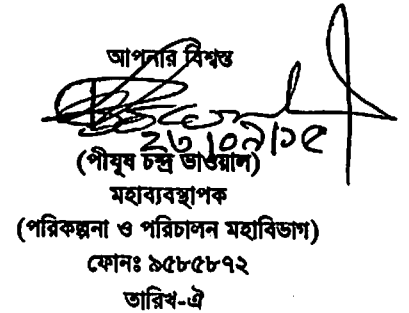 আপনার বিশ্বস্ত
২৩/০৯/১৫
(পীযূষ চন্দ্র ভাওয়াল)
মহাব্যবস্থাপক
(পরিকল্পনা ও পরিচালন মহাবিভাগ)
ফোনঃ ৯৫৮৫৮৭২
তারিখ-ঐ